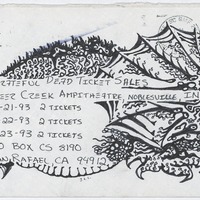 GRATEFUL DEAD TICKET SALES
DEER CREEK AMPITHEATRE, NOBLESVILLE, IN
-21-93 2 TICKETS
-22-93 2 TICKETS
-23-93 2 TICKETS
PO BOX CS 8190
SAN RAFAEL CA 94912